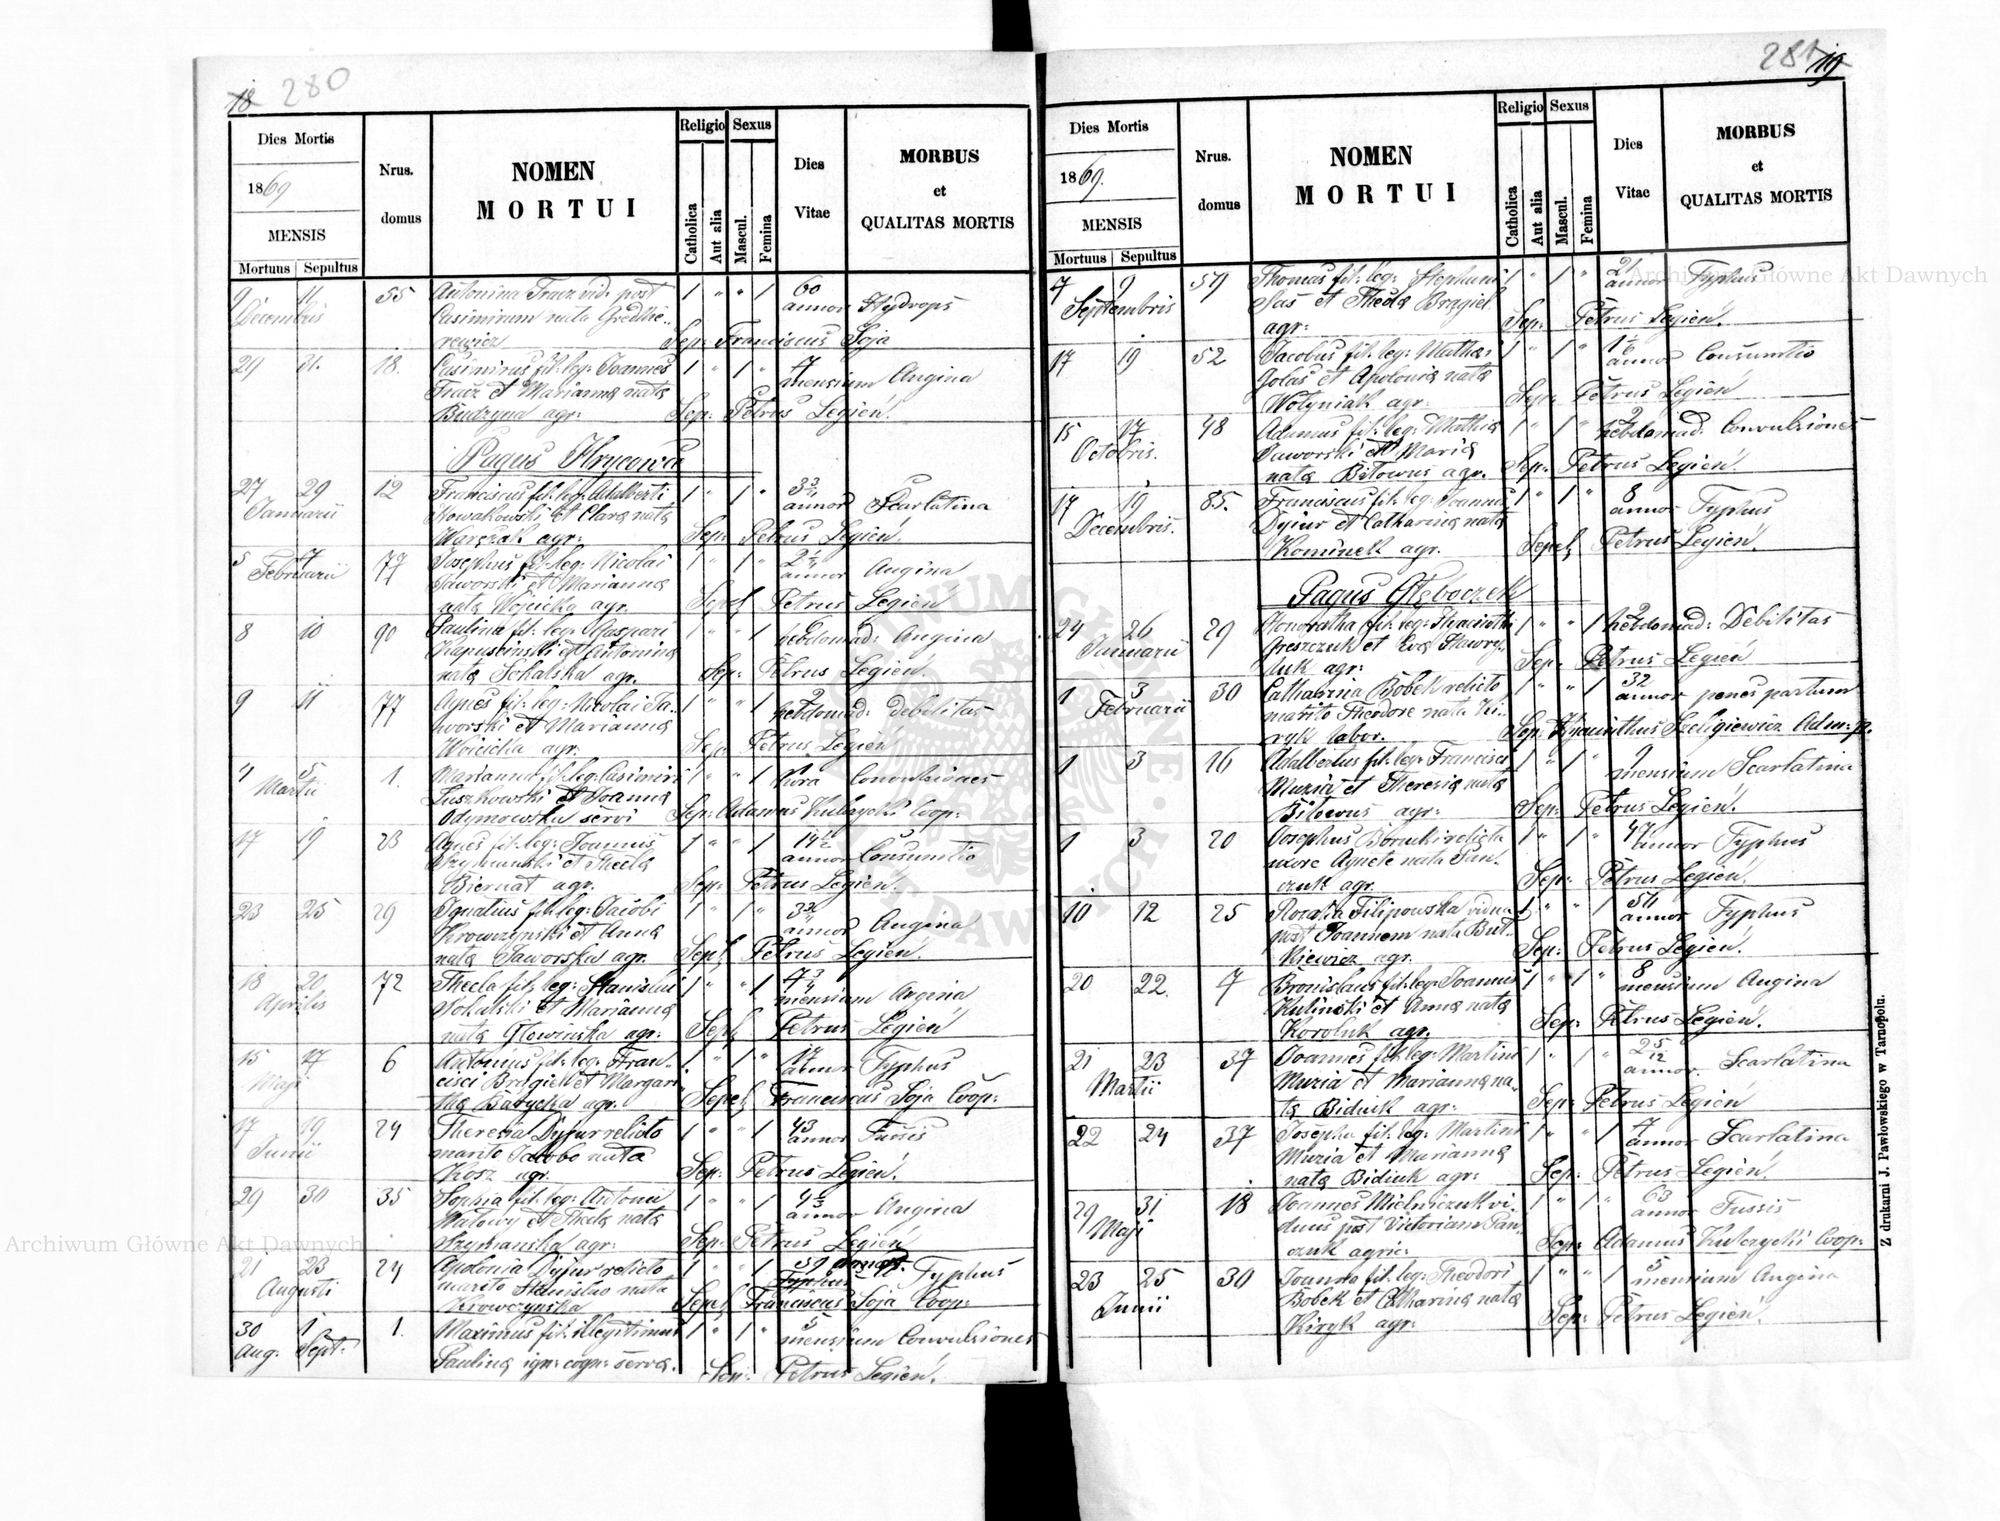 18 280
Dies Mortis
1869
MENSIS
Mortuus Sepultus
Nrus. domus
NOMEN
MORTUI
Religio
Catholica
Aut alia
Sexus
Mascul.
Femina
Dies Vitae
MORBUS
et
QUALITAS MORTIS
9 11 55 Antonina Tracz vid: post 1 " " 1 60
Decembris Casimirum nata annor Hydrops
rewicz Sep: Franciscus Soja
29 31. 18. Casimirus fil: leg: Joannes 1 " 1 " 7
Tracz et Marianna nata mensium Angina
Budzyna agr: Sep: Petrus Legień.
Pagus Hrycowce
27 29 12 Franciscus fil: leg: Adalberti 1 " 1 " 3 3/4
Januarii Nowakowski et Clara nata annor Scarlatina
agr: Sep: Petrus Legień.
5 7 77 Josephus fil: leg: Nicolai 1 " 1 " 2 1/4
Februarii Jaworski et Marianna annor Angina
nata Wojcicka agr. Sepel Petrus Legień
8 10 90 Paulina fil: leg: Gaspari 1 " " 1
Kapuściński et Antonina hebdomad: Angina
nata Sokalska agr. Sep: Petrus Legień.
9 11 77 Agnes fil: leg: Nicolai Ja- 1 " " 1 2
worski et Marianna hebdomad: Debilitas
Wojcicka agr. Sep: Petrus Legień
4 5 1. Marianna fil: leg: Casimiri 1 " " 1
Martii Luszkowski et Joanna hora Convulsiones
Odymowska servi Sep: Adamus Kulczycki Coop:
17 19 23 Agnes fil: leg: Joannis 1 " " 1 14 1/2
Szymanski et Thecla annor Consumtio
Biernat agr. Sep: Petrus Legień.
23 25 29 Ignatius fil: leg: Jacobi 1 " 1 " 3 3/4
Krowczynski et Anna annor Angina
nata Jaworska agr. Sepel Petrus Legień.
18 20 72 Thecla fil: leg: Stanislai 1 " " 1 7 3/4
Aprilis Sokalski et Marianna mensium Angina
nata Głowińska agr: Sepel Petrus Legień
15 17 6 Antonius fil: leg: Fran- 1 " 1 " 17
Maji cisci Brągiel et Margari annor Typhus
tha Barycka agr. Sepel Franciscus Soja Coop:
17 19 24 Theresia Dyjur relicto 1 " " 1 43
Junii marito Jacobo nata annor Tussis
Kosz agr. Sep: Petrus Legień.
29 30 35 Sophia fil: leg: Antonii 1 " " 1
Małowy et Thecla nata annor Angina
Szymanska agr: Sep: Petrus Legień
21 23 24 Apolonia Dyjur relicto 1 " " 1 59 annor.
Augusti marito Stanislao nata Typhus Typhus
Krowczynska Sepel Franciscus Soja Coop:
30 1 1. Maximus fil: illegitimus 1 " 1 " 5
Aug: Sept: mensium Convulsiones
Paulina ign: cogn: serva. Sep: Petrus Legień.
281 19
Dies Mortis
1869.
MENSIS
Mortuus Sepultus
Nrus. domus
NOMEN
MORTUI
Religio
Catholica
Aut alia
Sexus
Mascul.
Femina
Dies Vitae
MORBUS
et
QUALITAS MORTIS
7 9 59 Thomas fil: leg: Stephani 1 " 1 " 21
Septembris Sas et Thecla Brągiel annor Typhus
agr: Sep: Petrus Legień.
17 19 52 Jacobus fil: leg: Mathaei 1 " 1 "
Golas et Apolonia nata annor Consumtio
Wołyniak agr: Sep: Petrus Legień
15 17 48 Adamus fil: leg: Mathia 1 " 1 " 2
Octobris. Jaworski et Maria hebdomad: Convulsiones
nata Bitowus agr. Sep: Petrus Legień.
17 19 85. Franciscus fil: leg: Joannis 1 " 1 " 8
Decembris. Dyjur et Catharina nata annor Typhus
Kominek agr. Sepel Petrus Legień.
Pagus Głęboczek
24 26 29 Honoratha fil: leg: Hiacinthi 1 " " 1 2
Januarii Greszczuk et Eva Hawry- hebdomad: Debilitas
luk agr: Sep: Petrus Legień
1 3 30 Catharina Bobek relicto 1 " " 1 32
Februarii marito Theodore nata Ki- annor penes partum
ryk labor. Sep: Hyacinthus Szeligiewicz Adm: p.
1 3 26 Adalbertus fil: leg: Francisci 1 " 1 " 9
Muzia et Theresia nata mensium Scarlatina
Bitowus agr: Sep: Petrus Legień.
1 3 20 Josephus Boruki relicta 1 " 1 " 47
uxore Agnete nata Pan- annor Typhus
czuk agr. Sep: Petrus Legień.
10 12 25 Rozalia Filipowska vidua 1 " " 1 54
post Joannem nata But- annor Typhus
kiewicz agr: Sep: Petrus Legień.
20 22. 7 Bronislaus fil: leg: Joannis 1 " 1 " 8
Kulinski et Anna nata mensium Angina
Koroluk agr. Sep: Petrus Legień.
21 23 37 Joannes fil: leg: Martini 1 " 1 " 2 5/12
Martii Muzia et Marianna na- annor. Scarlatina
ta Bidiuk agr: Sep: Petrus Legień
22 24 37 Josepha fil: leg: Martini 1 " " 1 7
Muzia et Marianna annor Scarlatina
nata Bidiuk agr: Sep: Petrus Legień.
29 31 18 Joannes Mielniczuk vi- 1 " 1 " 63
Maji duus post Victoriam Pan- annor Tussis
czuk agric: Sep: Adamus Kulczycki Coop:
23 25 30 Joanna fil: leg: Theodori 1 " " 1 5
Junii Bobek et Catharina nata mensium Angina
Kiryk agr: Sep: Petrus Legień.
Z drukarni J. Pawłowskiego w Tarnopolu.
Archiwum Główne Akt Dawnych
Archiwum Główne Akt Dawnych
ARCHIWUM GŁÓWNE AKT DAWNYCH